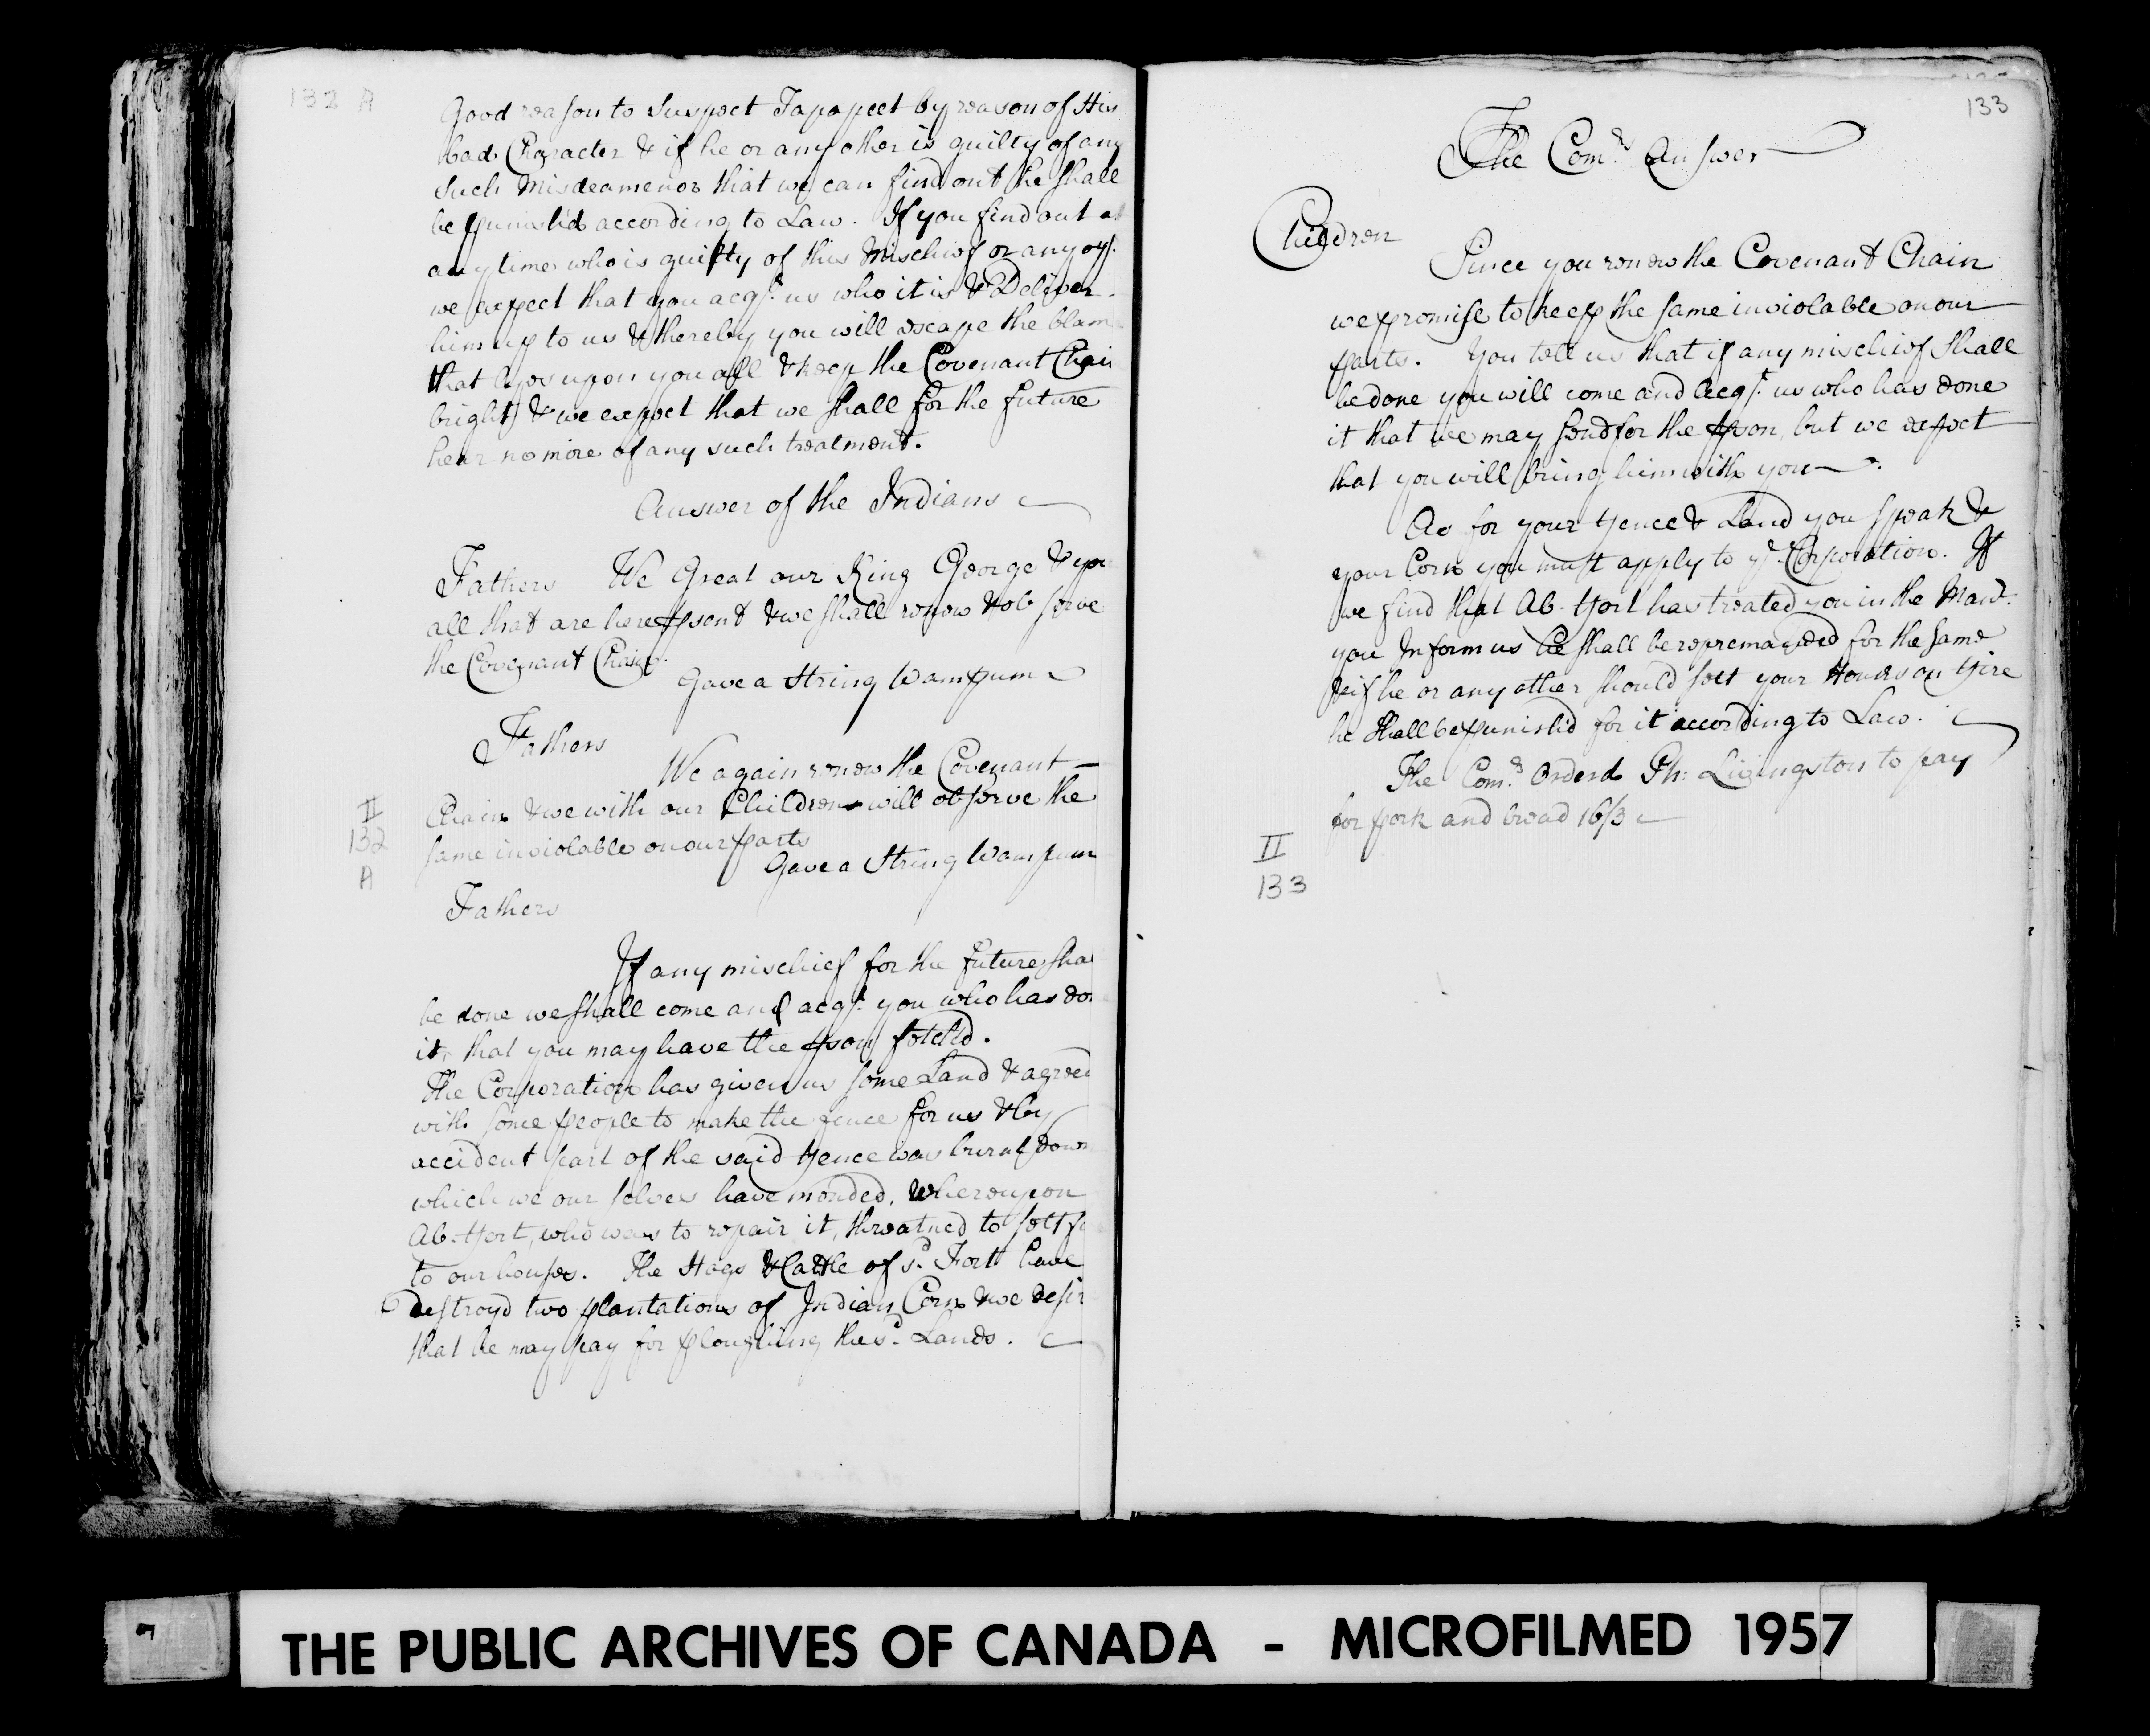 132 A
Good reason to Suspect Tapapeet by reason of His
bad Character & if he or any other is guilty of any
such Misdeamenor that we can find out he shall
be punish'd according to Law. If you find out at
any time who is guilty of this Mischief or any oyr.
we expect that you acqt. us who it is & Deliver
him up to us & thereby you will escape the blame
that lyes upon you all & keep the Covenant Chain
bright & we expect that we shall for the future
hear no more of any such treatment.
Answer of the Indians
Fathers We Great our King George & you
all that are here psent & we shall renew & observe
the Covenant Chain.
Gave a String Wampum
Fathers
We again renew the Covenant
Chain & we with our Children will observe the
same inviolable on our parts
Gave a String Wampum
II
132
A
Fathers
If any mischief for the future shal
be done we shall come and acqt. you who has don
it, that you may have the pson fetchd.
The Corporation has given us some Land & agreed
with some people to make the fence for us & by
accident part of the said ffence was burnt down
which we our selves have mended, Whereupon
Ab. ffort, who was to repair it, threatned to sett
to our houses. The Hogs & Cattle of sd. Fort have
destroyd two plantations of Indian Corn & we desir
that he may pay for ploughing the sd. Lands.
133
The Comrs. Answer
Children
Since you renew the Covenant Chain
we promise to keep the same inviolable on our
parts. You tell us that if any mischief shall
be done you will come and acqt. us who has done
it that we may send for the pson, but we expect
that you will bring him with you
As for your ffence & Land you speak &
your Corn you must apply to ye. Corporation. If
we find that Ab. ffort has treated you in the Manr.
you Inform us he shall be repremanded for the same
& if he or any other should sett your Houses on ffire
he shall be punishd for it according to Law.
The Comrs. Orderd Ph: Livingston to pay
for pork and bread 16/3
II
133
THE PUBLIC ARCHIVES OF CANADA - MICROFILMED 1957